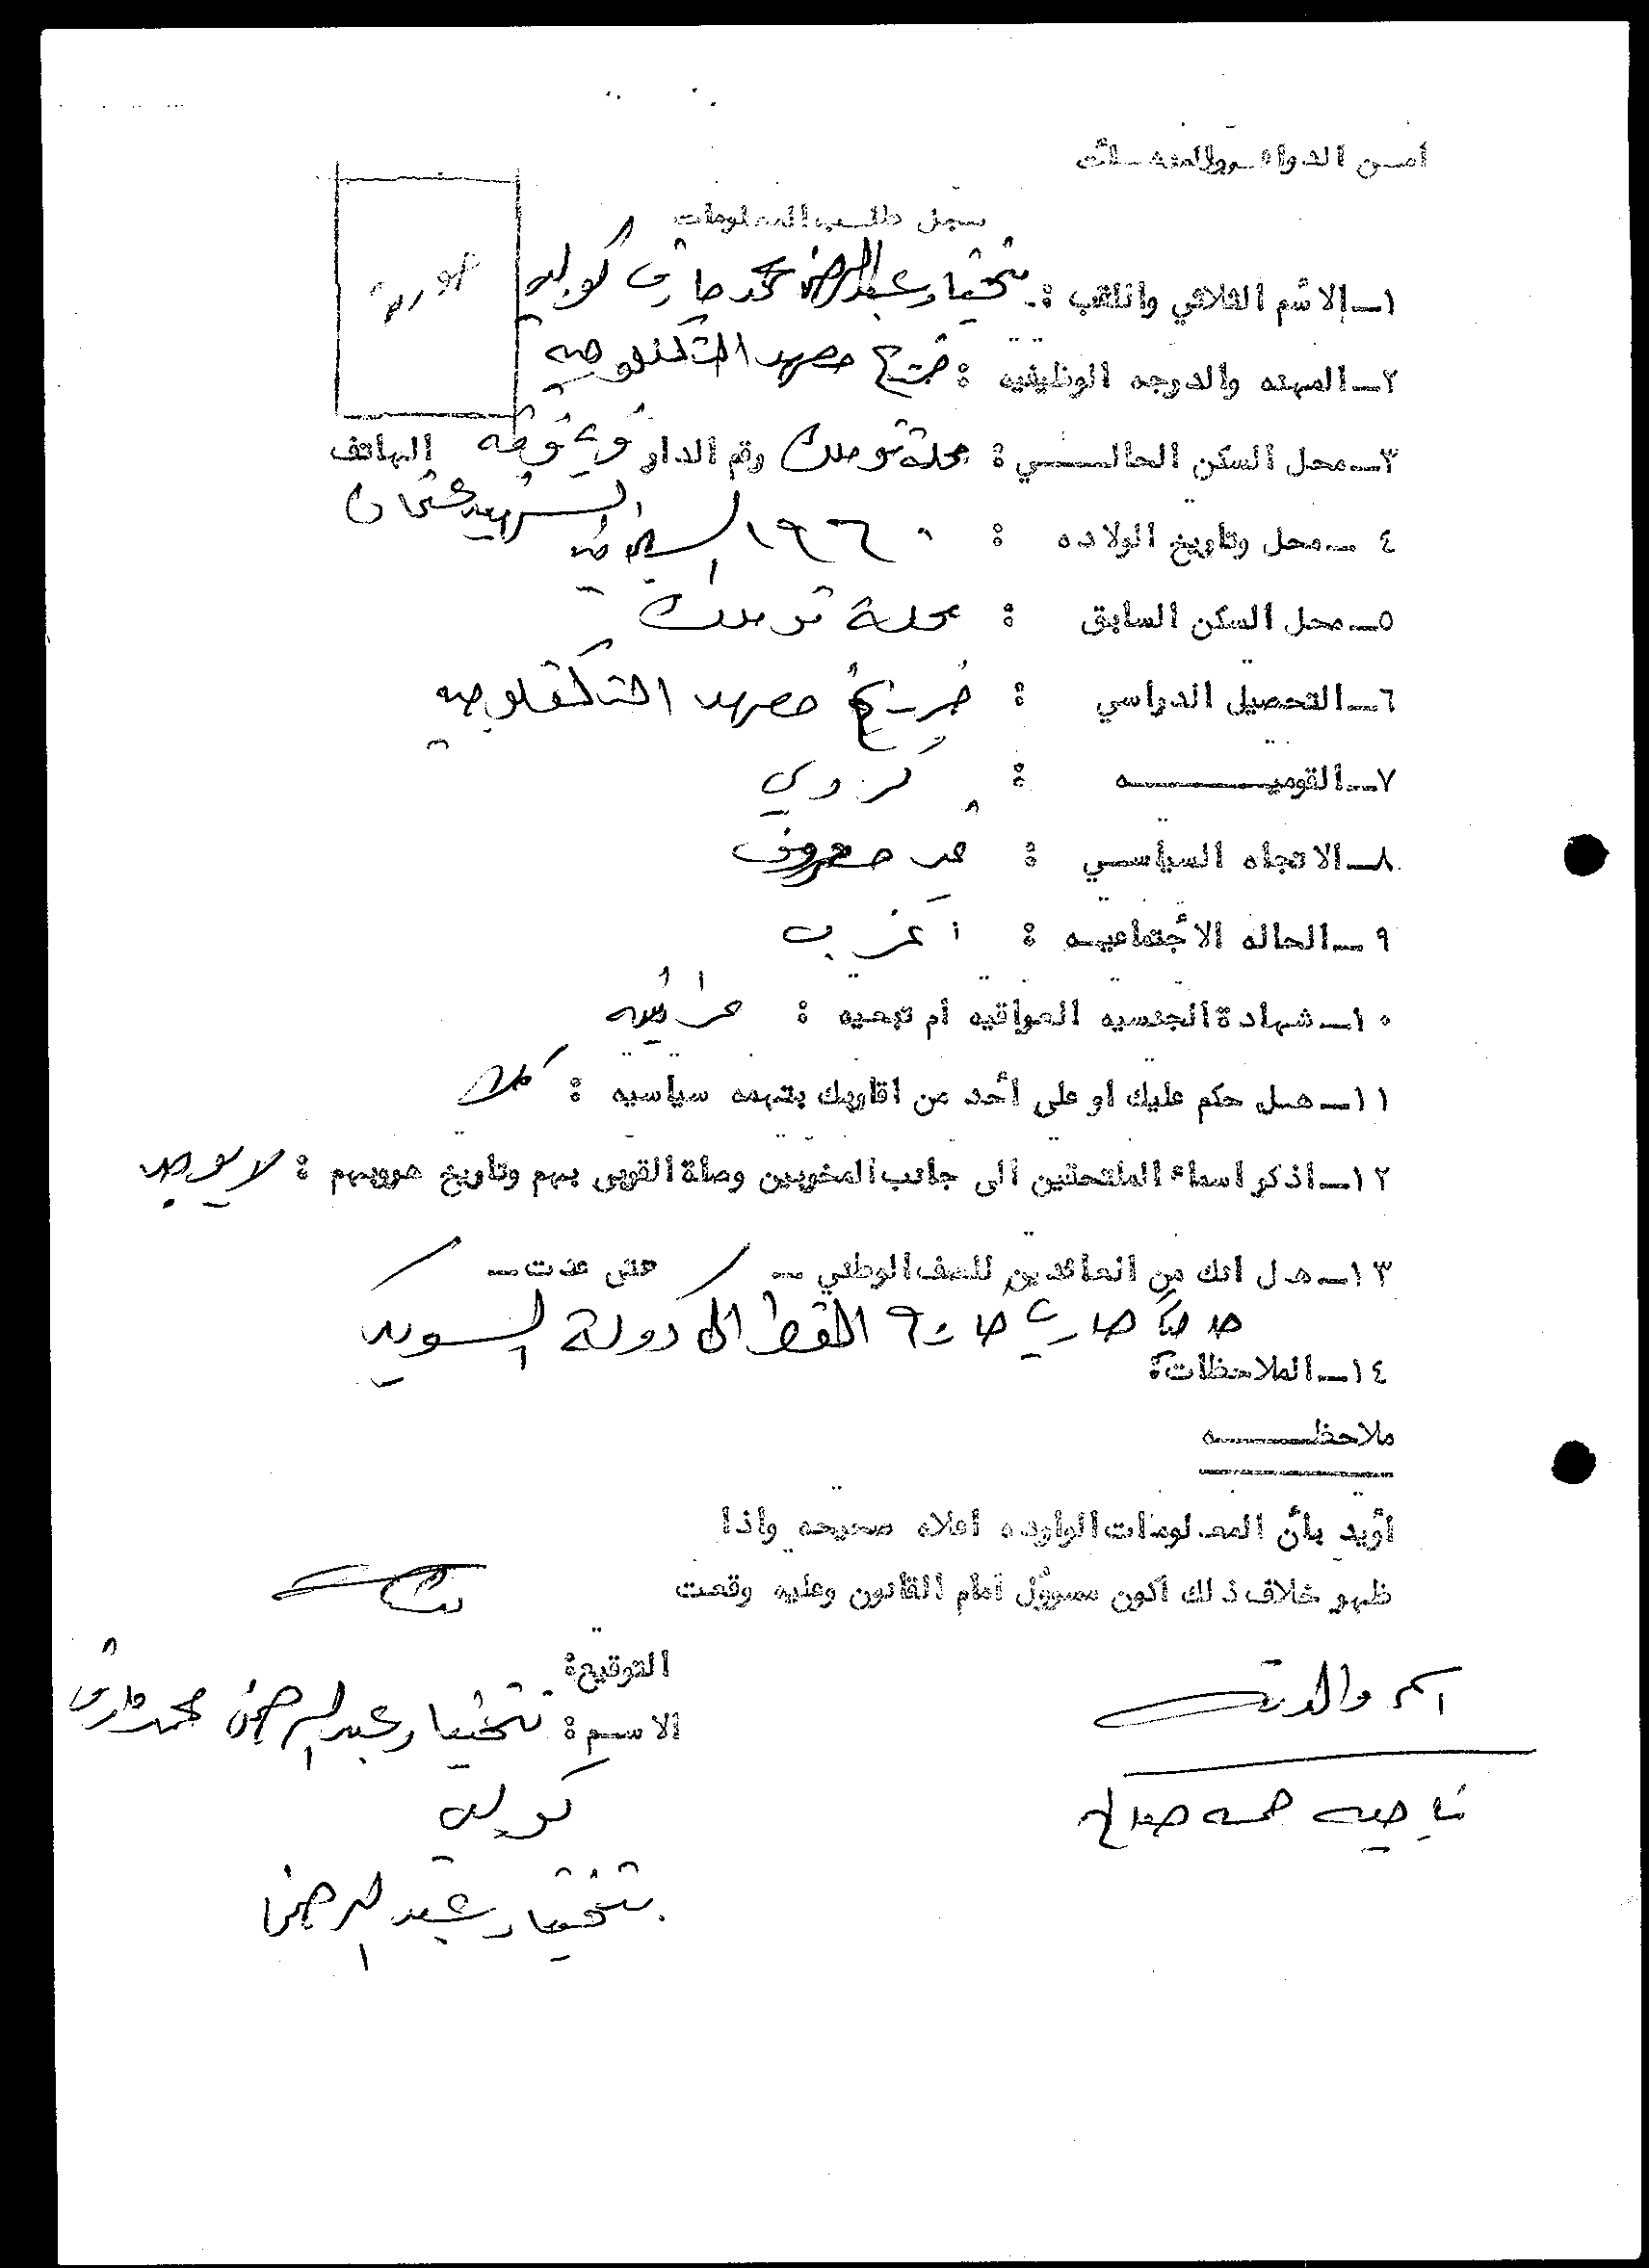 أمن الدوائر والمنشئات
سجل طلب المعلومات
صورة
١ـ الاسم الثلاثي واللقب : بختيار عبدالرحمن محمد
٢ـ المهنه والدرجه الوظيفيه : خريج معهد التكنلوجيه
٣ـ محل السكن الحالـــي : محلة رقم الدار الهاتف
الشهيد عثمان
٤ ـ محل وتاريخ الولاده : ١٩٦٠ السليمانية
٥ـ محل السكن السابق : محلة
٦ـ التحصيل الدراسي : خريج معهد التكنلوجيه
٧ـ القوميـــــه : كردي
٨ـ الاتجاه السياسـي : غير معروف
٩ ـ الحاله الاجتماعيـه : اعزب
١٠ـ شهادة الجنسيه العراقيه ام تبعيه : عراقيه
١١ـ هـل حكم عليك او على أحد من اقاربك بتهمه سياسيه : كلا
١٢ـ اذكر اسماء الملتحقين الى جانب المخربين وصلة القربى بهم وتاريخ هروبهم : لا يوجد
١٣ـ هـل انك من العائدين للصف الوطني ـ / متى عدت ـ /
القطر الى دولة السويد
١٤ـ الملاحظات :
ملاحظــــه
أؤيد بأن المعـلومات الوارده اعلاه صحيحه واذا
ظهر خلاف ذلك اكون مسؤول امام القانون وعليه وقعت
التوقيع :
اسم والدته
الاسـم : بختيار عبدالرحمن محمد
ناجيه حمه صالح
بختيار عبدالرحمن